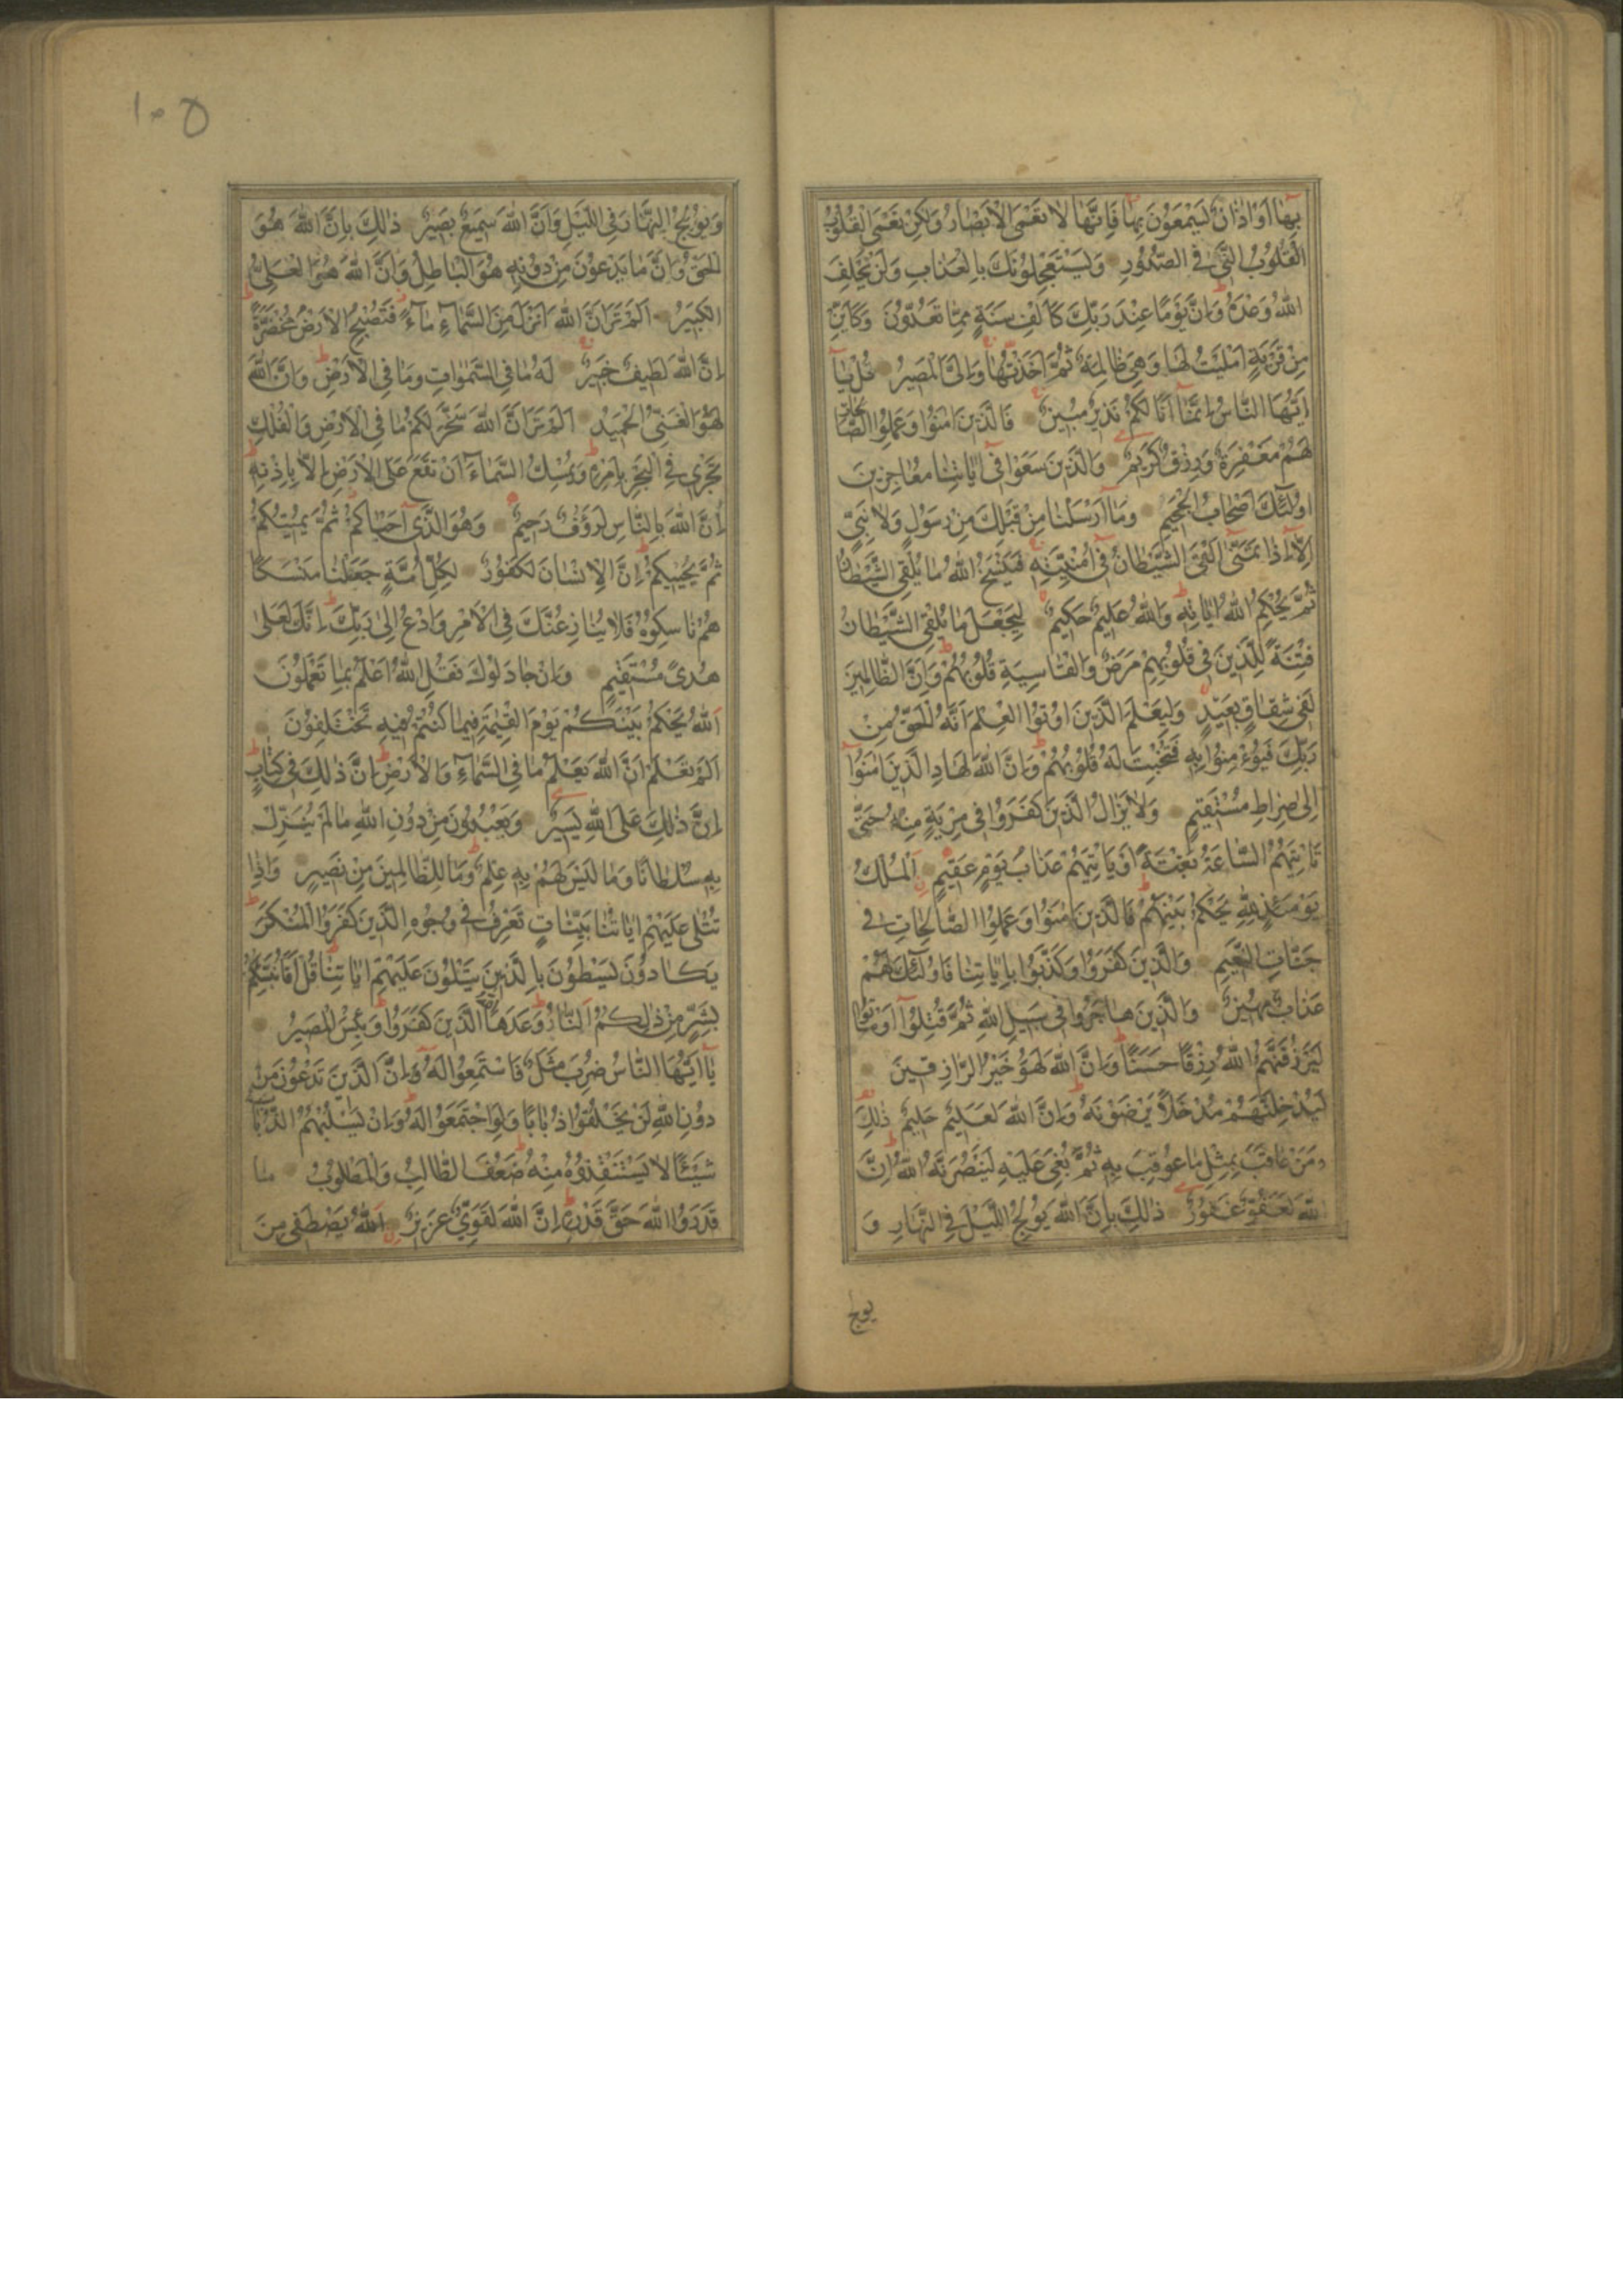 بِهَا اَوْ اٰذَانٌ يَسْمَعُونَ بِهَا فَاِنَّهَا لَا تَعْمَى الْاَبْصَارُ وَلٰكِنْ تَعْمَى الْقُلُوبُ
الْقُلُوبُ الَّتِي فِي الصُّدُورِ وَيَسْتَعْجِلُونَكَ بِالْعَذَابِ وَلَنْ يُخْلِفَ
اللّٰهُ وَعْدَهُ وَاِنَّ يَوْمًا عِنْدَ رَبِّكَ كَاَلْفِ سَنَةٍ مِمَّا تَعُدُّونَ وَكَاَيِّنْ
مِنْ قَرْيَةٍ اَمْلَيْتُ لَهَا وَهِيَ ظَالِمَةٌ ثُمَّ اَخَذْتُهَا وَاِلَيَّ الْمَصِيرُ قُلْ يَا
اَيُّهَا النَّاسُ اِنَّمَا اَنَا لَكُمْ نَذِيرٌ مُبِينٌ فَالَّذِينَ اٰمَنُوا وَعَمِلُوا الصَّالِحَاتِ
لَهُمْ مَغْفِرَةٌ وَرِزْقٌ كَرِيمٌ وَالَّذِينَ سَعَوْا فِي اٰيَاتِنَا مُعَاجِزِينَ
اُولٰئِكَ اَصْحَابُ الْجَحِيمِ وَمَا اَرْسَلْنَا مِنْ قَبْلِكَ مِنْ رَسُولٍ وَلَا نَبِيٍّ
اِلَّا اِذَا تَمَنّٰى اَلْقَى الشَّيْطَانُ فِي اُمْنِيَّتِهِ فَيَنْسَخُ اللّٰهُ مَا يُلْقِي الشَّيْطَانُ
ثُمَّ يُحْكِمُ اللّٰهُ اٰيَاتِهِ وَاللّٰهُ عَلِيمٌ حَكِيمٌ لِيَجْعَلَ مَا يُلْقِي الشَّيْطَانُ
فِتْنَةً لِلَّذِينَ فِي قُلُوبِهِمْ مَرَضٌ وَالْقَاسِيَةِ قُلُوبُهُمْ وَاِنَّ الظَّالِمِينَ
لَفِي شِقَاقٍ بَعِيدٍ وَلِيَعْلَمَ الَّذِينَ اُوتُوا الْعِلْمَ اَنَّهُ الْحَقُّ مِنْ
رَبِّكَ فَيُؤْمِنُوا بِهِ فَتُخْبِتَ لَهُ قُلُوبُهُمْ وَاِنَّ اللّٰهَ لَهَادِ الَّذِينَ اٰمَنُوا
اِلٰى صِرَاطٍ مُسْتَقِيمٍ وَلَا يَزَالُ الَّذِينَ كَفَرُوا فِي مِرْيَةٍ مِنْهُ حَتّٰى
تَاْتِيَهُمُ السَّاعَةُ بَغْتَةً اَوْ يَاْتِيَهُمْ عَذَابُ يَوْمٍ عَقِيمٍ اَلْمُلْكُ
يَوْمَئِذٍ لِلّٰهِ يَحْكُمُ بَيْنَهُمْ فَالَّذِينَ اٰمَنُوا وَعَمِلُوا الصَّالِحَاتِ فِي
جَنَّاتِ النَّعِيمِ وَالَّذِينَ كَفَرُوا وَكَذَّبُوا بِاٰيَاتِنَا فَاُولٰئِكَ لَهُمْ
عَذَابٌ مُهِينٌ وَالَّذِينَ هَاجَرُوا فِي سَبِيلِ اللّٰهِ ثُمَّ قُتِلُوا اَوْ مَاتُوا
لَيَرْزُقَنَّهُمُ اللّٰهُ رِزْقًا حَسَنًا وَاِنَّ اللّٰهَ لَهُوَ خَيْرُ الرَّازِقِينَ
لَيُدْخِلَنَّهُمْ مُدْخَلًا يَرْضَوْنَهُ وَاِنَّ اللّٰهَ لَعَلِيمٌ حَلِيمٌ ذٰلِكَ
وَمَنْ عَاقَبَ بِمِثْلِ مَا عُوقِبَ بِهِ ثُمَّ بُغِيَ عَلَيْهِ لَيَنْصُرَنَّهُ اللّٰهُ اِنَّ
اللّٰهَ لَعَفُوٌّ غَفُورٌ ذٰلِكَ بِاَنَّ اللّٰهَ يُولِجُ اللَّيْلَ فِي النَّهَارِ وَ
يولج
١٠٥
وَيُولِجُ النَّهَارَ فِي اللَّيْلِ وَاَنَّ اللّٰهَ سَمِيعٌ بَصِيرٌ ذٰلِكَ بِاَنَّ اللّٰهَ هُوَ
الْحَقُّ وَاَنَّ مَا يَدْعُونَ مِنْ دُونِهِ هُوَ الْبَاطِلُ وَاَنَّ اللّٰهَ هُوَ الْعَلِيُّ
الْكَبِيرُ اَلَمْ تَرَ اَنَّ اللّٰهَ اَنْزَلَ مِنَ السَّمَاءِ مَاءً فَتُصْبِحُ الْاَرْضُ مُخْضَرَّةً
اِنَّ اللّٰهَ لَطِيفٌ خَبِيرٌ لَهُ مَا فِي السَّمٰوَاتِ وَمَا فِي الْاَرْضِ وَاِنَّ اللّٰهَ
لَهُوَ الْغَنِيُّ الْحَمِيدُ اَلَمْ تَرَ اَنَّ اللّٰهَ سَخَّرَ لَكُمْ مَا فِي الْاَرْضِ وَالْفُلْكَ
تَجْرِي فِي الْبَحْرِ بِاَمْرِهِ وَيُمْسِكُ السَّمَاءَ اَنْ تَقَعَ عَلَى الْاَرْضِ اِلَّا بِاِذْنِهِ
اِنَّ اللّٰهَ بِالنَّاسِ لَرَؤُفٌ رَحِيمٌ وَهُوَ الَّذِي اَحْيَاكُمْ ثُمَّ يُمِيتُكُمْ
ثُمَّ يُحْيِيكُمْ اِنَّ الْاِنْسَانَ لَكَفُورٌ لِكُلِّ اُمَّةٍ جَعَلْنَا مَنْسَكًا
هُمْ نَاسِكُوهُ فَلَا يُنَازِعُنَّكَ فِي الْاَمْرِ وَادْعُ اِلٰى رَبِّكَ اِنَّكَ لَعَلٰى
هُدًى مُسْتَقِيمٍ وَاِنْ جَادَلُوكَ فَقُلِ اللّٰهُ اَعْلَمُ بِمَا تَعْمَلُونَ
اَللّٰهُ يَحْكُمُ بَيْنَكُمْ يَوْمَ الْقِيٰمَةِ فِيمَا كُنْتُمْ فِيهِ تَخْتَلِفُونَ
اَلَمْ تَعْلَمْ اَنَّ اللّٰهَ يَعْلَمُ مَا فِي السَّمَاءِ وَالْاَرْضِ اِنَّ ذٰلِكَ فِي كِتَابٍ
اِنَّ ذٰلِكَ عَلَى اللّٰهِ يَسِيرٌ وَيَعْبُدُونَ مِنْ دُونِ اللّٰهِ مَا لَمْ يُنَزِّلْ
بِهِ سُلْطَانًا وَمَا لَيْسَ لَهُمْ بِهِ عِلْمٌ وَمَا لِلظَّالِمِينَ مِنْ نَصِيرٍ وَاِذَا
تُتْلٰى عَلَيْهِمْ اٰيَاتُنَا بَيِّنَاتٍ تَعْرِفُ فِي وُجُوهِ الَّذِينَ كَفَرُوا الْمُنْكَرَ
يَكَادُونَ يَسْطُونَ بِالَّذِينَ يَتْلُونَ عَلَيْهِمْ اٰيَاتِنَا قُلْ اَفَاُنَبِّئُكُمْ
بِشَرٍّ مِنْ ذٰلِكُمْ اَلنَّارُ وَعَدَهَا اللّٰهُ الَّذِينَ كَفَرُوا وَبِئْسَ الْمَصِيرُ
يَا اَيُّهَا النَّاسُ ضُرِبَ مَثَلٌ فَاسْتَمِعُوا لَهُ اِنَّ الَّذِينَ تَدْعُونَ مِنْ
دُونِ اللّٰهِ لَنْ يَخْلُقُوا ذُبَابًا وَلَوِ اجْتَمَعُوا لَهُ وَاِنْ يَسْلُبْهُمُ الذُّبَابُ
شَيْئًا لَا يَسْتَنْقِذُوهُ مِنْهُ ضَعُفَ الطَّالِبُ وَالْمَطْلُوبُ مَا
قَدَرُوا اللّٰهَ حَقَّ قَدْرِهِ اِنَّ اللّٰهَ لَقَوِيٌّ عَزِيزٌ اَللّٰهُ يَصْطَفِي مِنَ